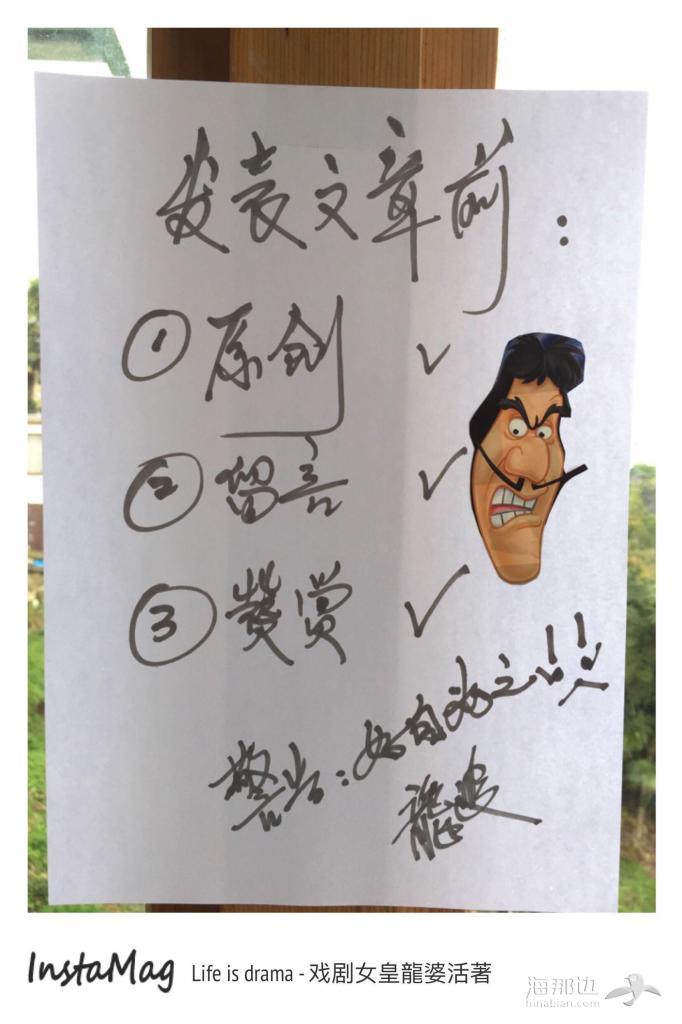 发表文章前：
① 原创 ✓
② 留言 ✓
③ 赞赏 ✓
警告：好自为之!!
龍婆
InstaMag Life is drama - 戏剧女皇龍婆活著
海那边
hinabian.com